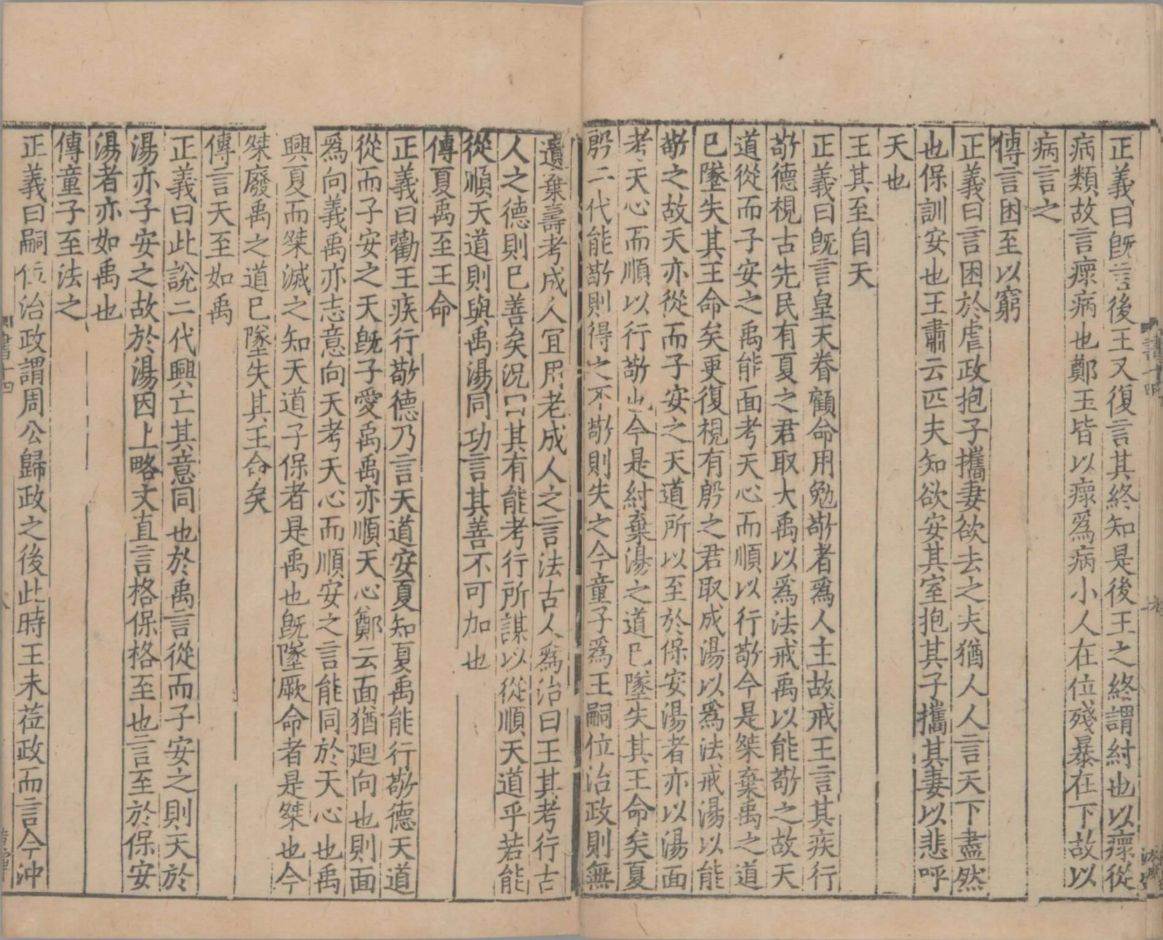 正義曰旣言後王又復言其終知是後王之終謂紂也以瘝從
病類故言瘝病也鄭王皆以瘝爲病小人在位殘暴在下故以
病言之
傳言困至以窮
正義曰言困於虐政抱子攜妻欲去之夫猶人人言天下盡然
也保訓安也王肅云匹夫知欲安其室抱其子攜其妻以悲呼
天也
王其至自天
正義曰旣言皇天眷顧命用勉敬者爲人主故戒王言其疾行
敬德視古先民有夏之君取大禹以爲法戒禹以能敬之故天
道從而子安之禹能面考天心而順以行敬今是桀棄禹之道
已墜失其王命矣更復視有殷之君取成湯以爲法戒湯以能
敬之故天亦從而子安之天道所以至於保安湯者亦以湯面
考天心而順以行敬也今是紂棄湯之道已墜失其王命矣夏
殷二代能敬則得之不敬則失之今童子爲王嗣位治政則無
遺棄壽考成人宜用老成人之言法古人爲治曰王其考行古
人之德則已善矣況曰其有能考行所謀以從順天道乎若能
從順天道則與禹湯同功言其善不可加也
傳夏禹至王命
正義曰勸王疾行敬德乃言天道安夏知夏禹能行敬德天道
從而子安之天旣子愛禹禹亦順天心鄭云面猶廻向也則面
爲向義禹亦志意向天考天心而順安之言能同於天心也禹
興夏而桀滅之知天道子保者是禹也旣墜厥命者是桀也今
桀廢禹之道已墜失其王命矣
傳言天至如禹
正義曰此說二代興亡其意同也於禹言從而子安之則天於
湯亦子安之故於湯因上略文直言格保格至也言至於保安
湯者亦如禹也
傳童子至法之
正義曰嗣位治政謂周公歸政之後此時王未莅政而言今沖